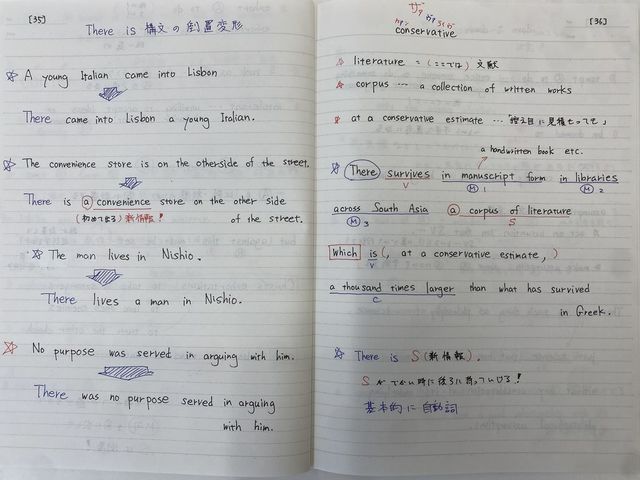 [35]
There is 構文の倒置変形
☆ A young Italian came into Lisbon
There came into Lisbon a young Italian.
☆ The convenience store is on the otherside of the street.
There is a convenience store on the other side
(初めて出る) 新情報! of the street.
☆ The man lives in Nishio.
There lives a man in Nishio.
☆ No purpose was served in arguing with him.
There was no purpose served in arguing
with him.
[36]
conservative
☆ literature = (ここでは) 文献
☆ corpus … a collection of written works
☆ at a conservative estimate … 「控え目に見積もっても」
a handwritten book etc.
☆ There survives in manuscript form in libraries
V M1 M2
across South Asia a corpus of literature
M3 S
which is (, at a conservative estimate, )
V
a thousand times larger than what has survived
C
in Greek.
☆ There is S (新情報).
Sがでかい時に後ろに持っていける!
基本的に自動詞